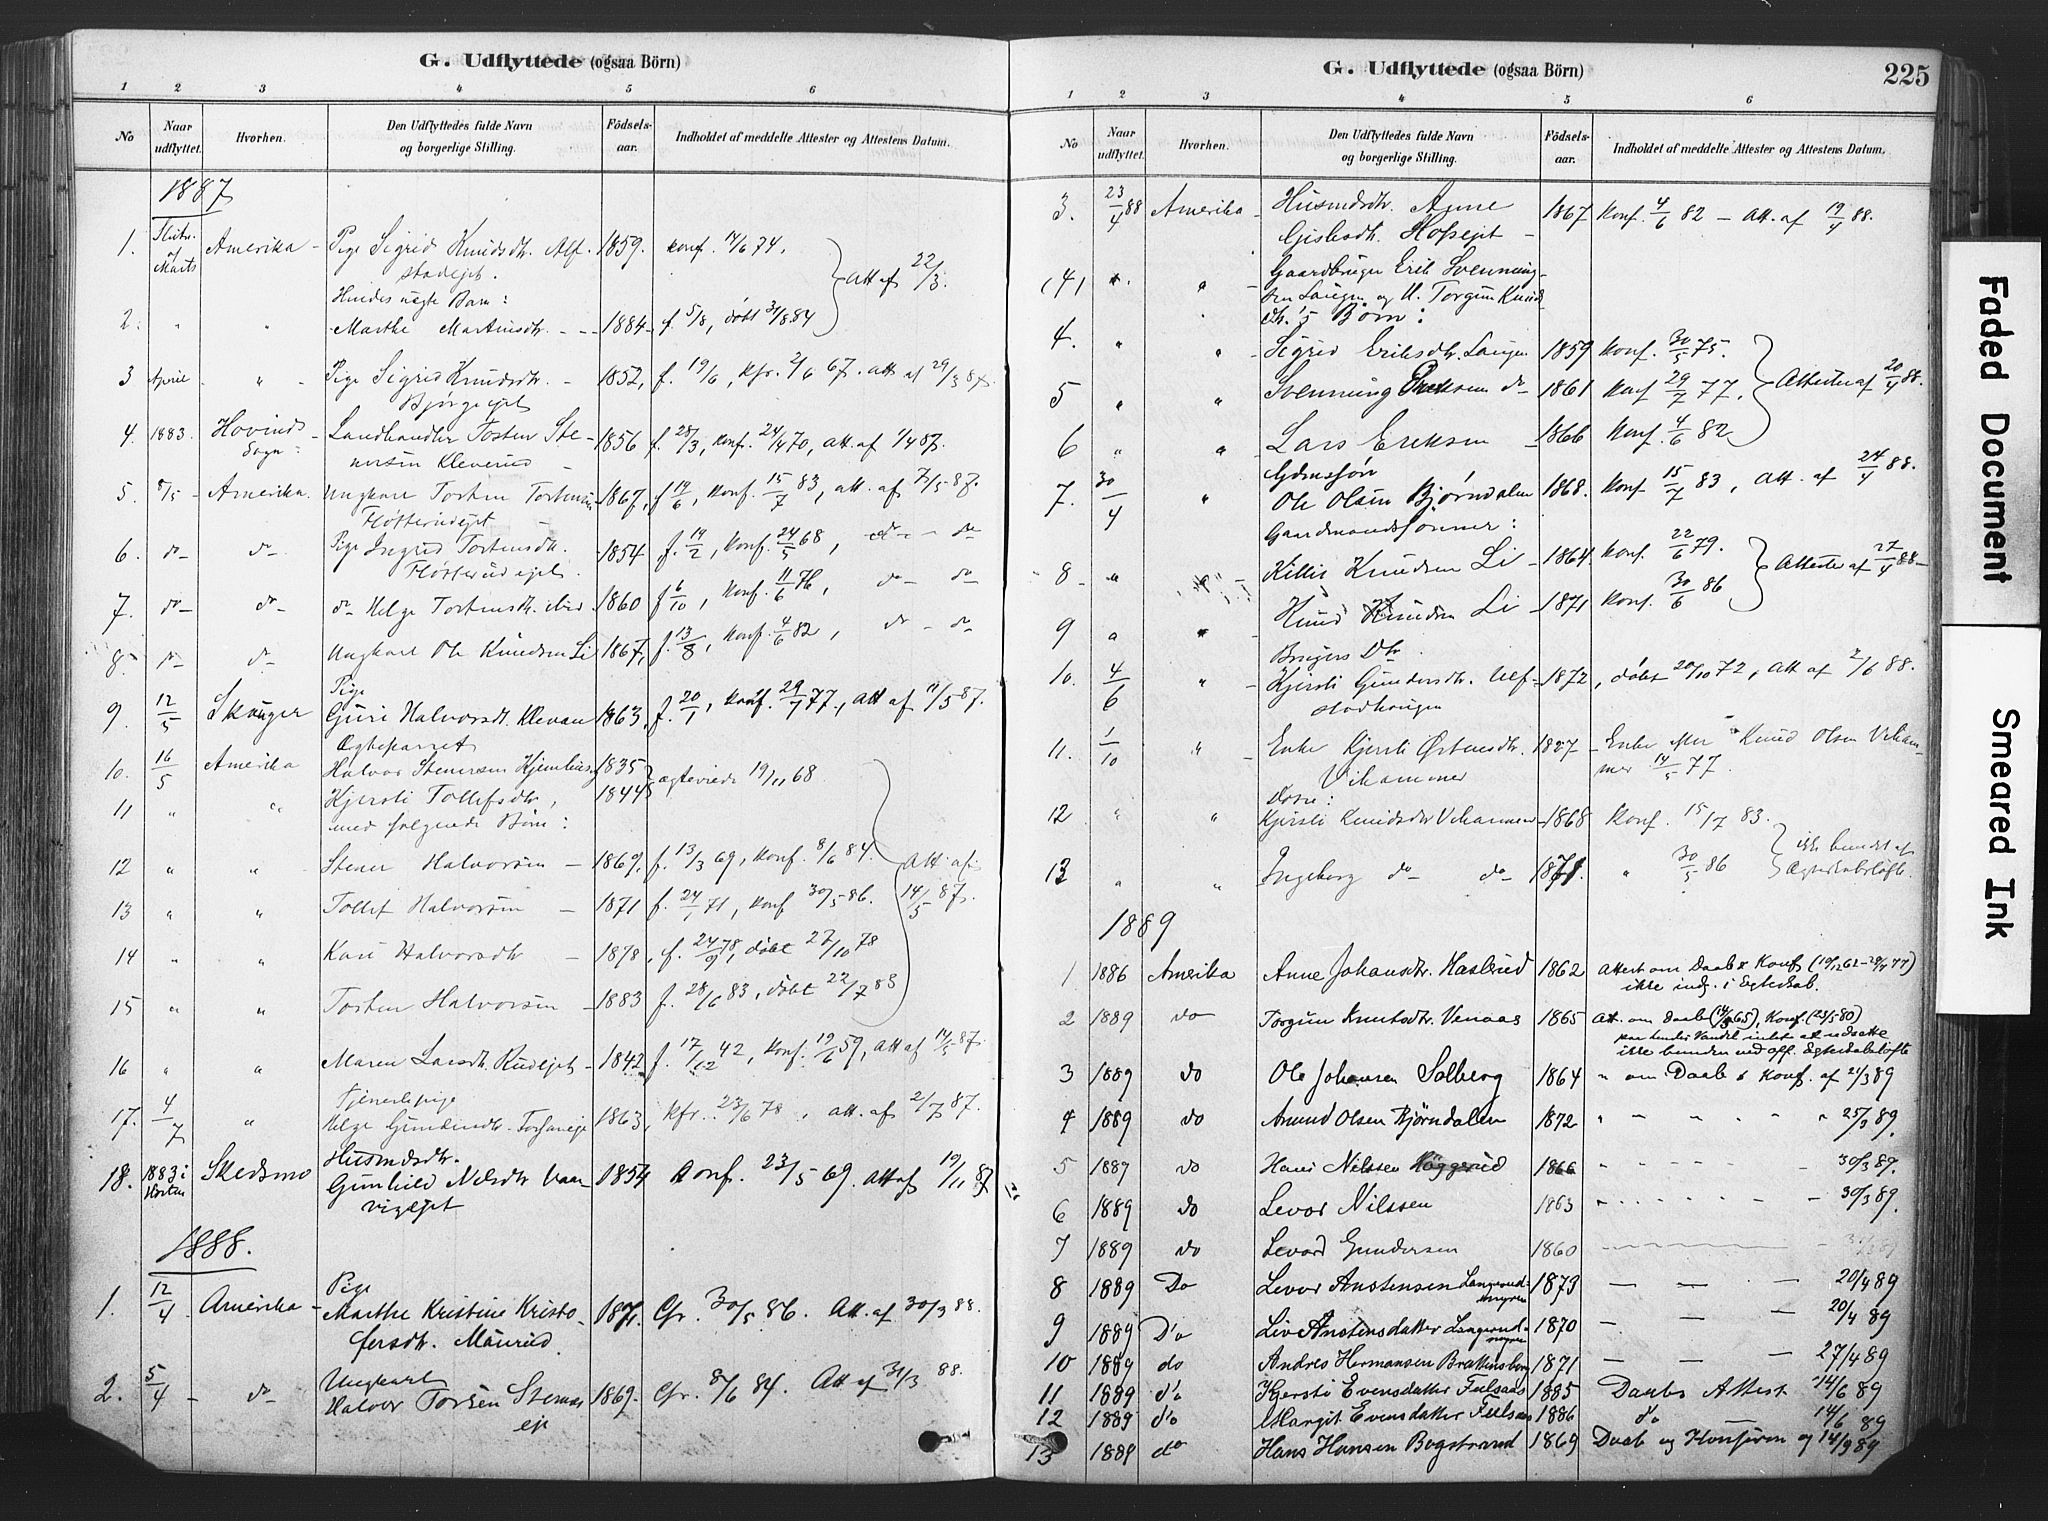 G. Udflyttede (ogsaa Börn)
1 2 3 4 5 6
No
Naar udflyttet.
Hvorhen.
Den Udflyttedes fulde Navn og borgerlige Stilling.
Födsels-aar.
Indholdet af meddelte Attester og Attestens Datum.
1887
1. Amerika - Pige Sigrid Knudsdtr. 1859. konf. 74.
Marts
Hendes uægte Barn:
2. " " Marthe Martinsdtr. - 1884 - f. 5/8, döbt 31/8 84 Att af 22/3.
3 April - " - Pige Sigrid Knudsdtr. - 1852, f. 19/6, kfr. 2/6 67. att af 29/3 87.
Bjørgeejet
4. 1883. Hovind Sogn - Landhandler Torsten Ste- 1856 f. 28/3, konf. 24/4 70, att. af 1/4 87.
nersen Kleverud -
5. 8/5 - Amerika. Ungkarl Torsten Torstensen 1867, f 14/6, konf. 15/7 83, att. af 7/5 87.
Fløtterudejet
6. do - do - Pige Ingrid Torstensdtr. 1854 f. 19/2, konf. 24/5 68, do - do
Fløtterudejet.
7. do - do - do Helge Torstensdtr. ibid 1860 f 6/10, konf. 11/6 76, do - do
8. do - do Ungkarl Ole Knudsen Li 1867, f. 13/8, konf. 4/6 82, do - do
Pige
9. 12/5 Skouger Guri Halvorsdt. Klevan 1863, f. 20/1, konf. 29/7 77, Att af 11/5 87.
Ægteparret
10. 16/5 Amerika Halvor Stenersen 1835 ægteviede 19/11 68
11 " " Kjersti Tollefsdtr, 1844
med følgende Børn:
12 " " Stener Halvorsen - 1869, f. 13/3 69, konf. 8/6 84. Att af
13 " " Tollef Halvorsen - 1871 f. 24/1 71, konf 30/5 86. 14/5 87.
14 " " Kari Halvorsdtr - 1878, f. 24/9 78, döbt 27/10 78
15 " " Torsten Halvorsen - 1883 f. 28/6 83, döbt 22/7 83
16 " " Maren Larsdtr. Rudejet - 1842 f. 17/12 42, konf. 19/6 59, att af 14/5 87.
Tjenestepige
17. 4/7 " Helge Gundersdtr. 1863, kfr. 23/6 78, att. af 2/7 87.
Husmdsdtr.
18. 1883 i Høsten Skedsmo Gunhild Nelsdtr Vaar- 1854 Konf. 23/5 69. Att af 19/11 87
vigejet
1888.
Pige
1. 12/4 Amerika - Marthe Kristine Kristo- 1871. Cfr. 30/5 86. Att. af 30/3 88.
fersdt. Maurud.
Ungkarl
2. 5/4 - do Halvor Torsen Stenas 1869. Cfr. 8/6 84. Att af 31/3 88.
eje
G. Udflyttede (ogsaa Börn) 225
1 2 3 4 5 6
No
Naar udflyttet.
Hvorhen.
Den Udflyttedes fulde Navn og borgerlige Stilling.
Födsels-aar.
Indholdet af meddelte Attester og Attestens Datum.
3. 23/4 88 Amerika - Husmdsdtr. Anne 1867 konf. 4/6 82 - Att. af 19/4 88.
Gislesdt. Hofsejet -
(4) " " - Gaardbruger Erik Svenning-
sen Laugen og H. Torgun Knud
dtr.'s Børn:
4. " " Sigrid Eriksdtr. Laugen 1859 konf. 30/5 75.
5 " " Svenning Eriksen do - 1861 konf 29/7 77. Attester af 20/4 88.
6 " " Lars Eriksen - 1866 konf. 4/6 82
Gdmssøn
7. 30/4 " Ole Olsen Bjørndalen 1868. konf. 15/7 83, att. af 24/4 88.
Gaardmandssønner:
8 - " " - Killis Knudsen Li - 1864. konf. 22/6 79. Attester af 27/4 88 -
9 " " Knud Knudsen Li - 1871 konf. 30/6 86
Brugers Dtr.
10. 4/6 " - Kjersti Gundersdtr. Ulf- 1872, döbt 20/10 72, Att af 2/6 88.
stadhaugen
11. 1/10 " Enke Kjersti Østensdtr. 1827 - Enke efter Knud Olsen Vikam-
Vikammer mer 14/5 77.
Døtre:
12 " " Kjersti Knudsdtr Vikammer - 1868 konf. 15/7 83. ikke bundet af
13 " " Ingeborg do - do - 1871. " 30/5 86 Ægteskabsløfte.
1889
1 1886 Amerika Anne Johansdtr. Haslerud 1862 Attest om Daab & Konf (19/12 62 - 29/7 77)
ikke indg. i Egteskab.
2 1889 do Torgun Knutsdtr. Venaas 1865 Att. om daab (65), Konf. (23/5 80)
paa hendes Vandel intet at udsætte
ikke bunden ved off. Egteskabsløfte
3 1889 do Ole Johansen Solberg 1864 " om Daab & Konf. af 21/3 89
4 1889 do Amund Olsen Björndalen 1872 " " " " " 25/3 89.
5 1889 do Hans Nilssen Häggerud 1866 " " " " 30/3 89.
6 1889 do Levor Nilssen 1863 " " " 30/3 89.
7 1889 do Levord Gundersen 1860
8 1889 Do Levor Anstensen Langerud- 1873 - - - 20/4 89
myren
9 1889 D'o Liv Anstensdatter Langerud- 1870 - - - 20/4 89
myren
10 1889 do Andres Hermansen 1871 - - - 27/4 89
11 1889 d'o Kjersti Evensdatter Fulsaas 1885 Daabs Attest 14/6 89
12 1889 d'o Margit Evensdatter Fulsaas 1886 d'o 14/6 89
13 1889 do Hans Hansen Bogstrand 1869 Daab og og 14/9 89
Faded Document
Smeared Ink